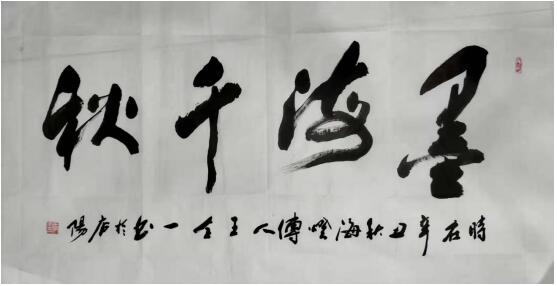 墨海千秋
時在辛丑秋海嘜傳人王令一书於店陽